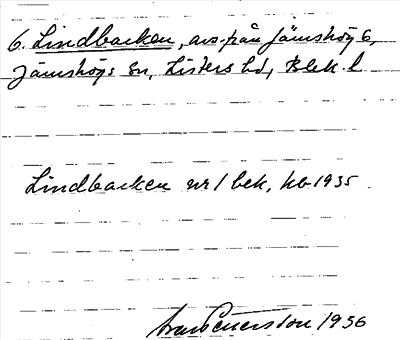 6. Lindbacken, avs. från Jämshög 6,
Jämshögs sn, Listers hd, Blek. l.
Lindbacken nr 1 bek, kb 1935.
1936